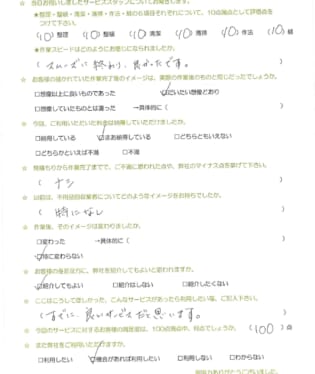 ☆ 当日お伺いしましたサービススタッフについてお聞きします。
★整理・整頓・清潔・清掃・作法・躾の6項目それぞれについて、10点満点として評価点を
つけて下さい。
(10) 整理 (10) 整頓 (10) 清潔 (10) 清掃 (10) 作法 (10) 躾
★作業スピードはどのようにお感じになられましたか。
( スムーズに終わり、良かったです。 )
☆ お客様の描かれていた作業完了後のイメージは、実際の作業後のものと同じだったでしょうか。
□想像以上に良いものであった ☑だいたい想像どおり
□想像していたものとは違った →具体的に( )
☆ 今回、ご利用いただいた料金は納得していただけましたか。
□納得している ☑まあ納得している □どちらともいえない
□どちらかといえば不満 □不満
☆ 見積もりから作業完了までで、ご不満に思われた点や、弊社のマイナス点を挙げて下さい。
( ナシ )
☆ 以前は、不用品回収業者についてどのようなイメージをお持ちでしたか。
( 特になし )
☆ 作業後、そのイメージは変わりましたか。
□変わった →具体的に( )
☑特に変わらない
☆ お客様の身近な方に、弊社を紹介してもよいと思われますか。
☑紹介してもよい □紹介はしない □紹介したくない
☆ ここはこうして欲しかった、こんなサービスがあったら利用したい等、ご記入下さい。
( すでに、良いサービスだと思います。 )
☆ 今回のサービスに対するお客様の満足度は、100点満点中、何点でしょうか。(100) 点
☆ また弊社をご利用いただけますか。
□利用したい ☑機会があれば利用したい □利用しない □わからない
ご協力ありがとうございました。